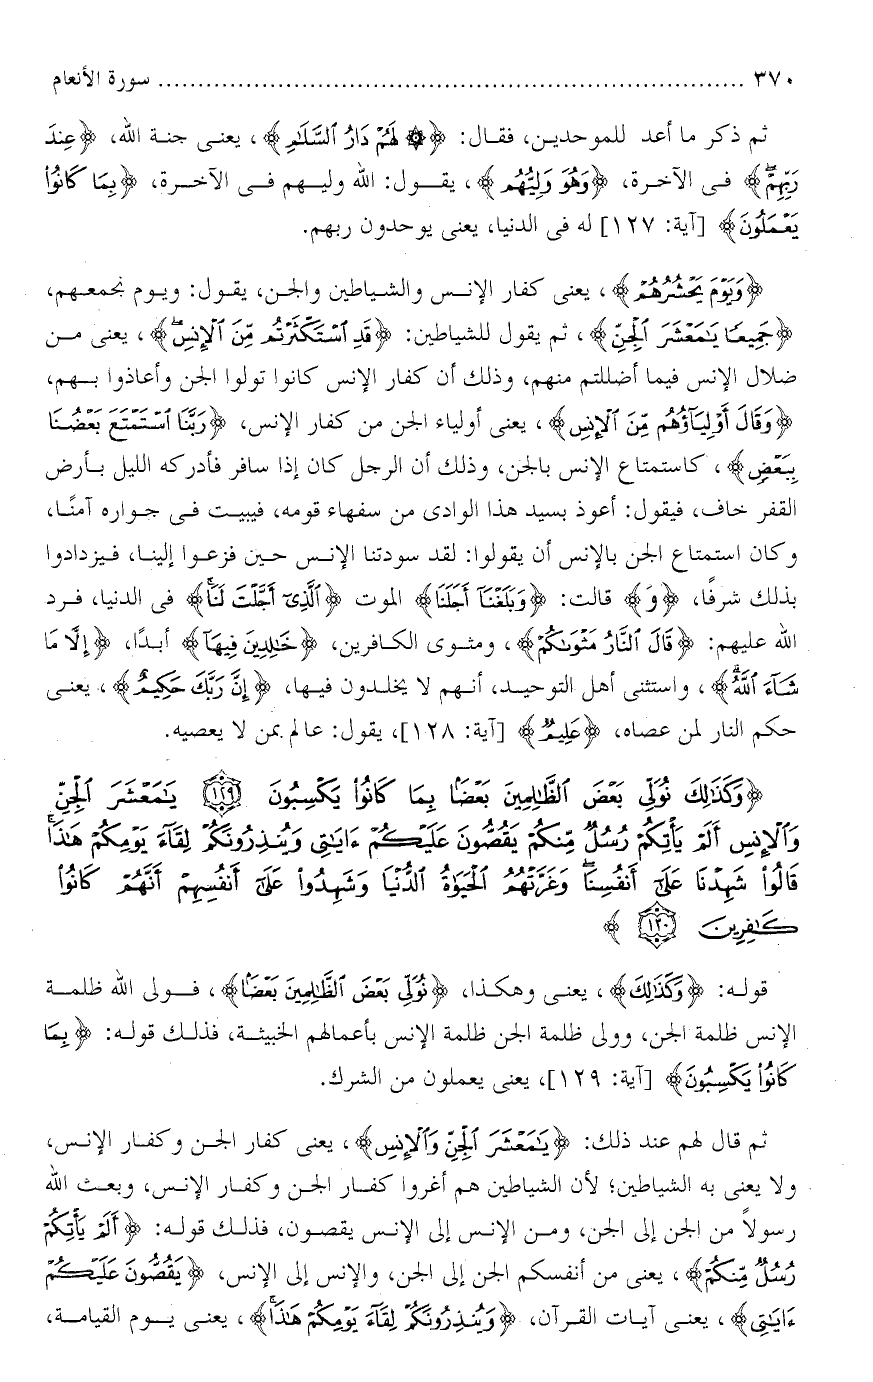 ٣٧٠ ........................................................................ سورة الأنعام
ثم ذكر ما أعد للموحدين، فقال: ﴿۞ لَهُمْ دَارُ السَّلَامِ﴾، يعنى جنة الله، ﴿عِندَ
رَبِّهِمْ ۖ﴾ فى الآخرة، ﴿وَهُوَ وَلِيُّهُم﴾، يقول: الله وليهم فى الآخرة، ﴿بِمَا كَانُوا۟
يَعْمَلُونَ﴾ [آية: ١٢٧] له فى الدنيا، يعنى يوحدون ربهم.
﴿وَيَوْمَ يَحْشُرُهُمْ﴾، يعنى كفار الإنس والشياطين والجن، يقول: ويوم نجمعهم،
﴿جَمِيعًا يَـٰمَعْشَرَ ٱلْجِنِّ﴾، ثم يقول للشياطين: ﴿قَدِ ٱسْتَكْثَرْتُم مِّنَ ٱلْإِنسِ ۖ﴾، يعنى من
ضلال الإنس فيما أضللتم منهم، وذلك أن كفار الإنس كانوا تولوا الجن وأعاذوا بهم،
﴿وَقَالَ أَوْلِيَآؤُهُم مِّنَ ٱلْإِنسِ﴾، يعنى أولياء الجن من كفار الإنس، ﴿رَبَّنَا ٱسْتَمْتَعَ بَعْضُنَا
بِبَعْضٍ﴾، كاستمتاع الإنس بالجن، وذلك أن الرجل كان إذا سافر فأدركه الليل بأرض
القفر خاف، فيقول: أعوذ بسيد هذا الوادى من سفهاء قومه، فيبيت فى جواره آمنًا،
وكان استمتاع الجن بالإنس أن يقولوا: لقد سودتنا الإنس حين فزعوا إلينا، فيزدادوا
بذلك شرفًا، ﴿وَ﴾ قالت: ﴿وَبَلَغْنَآ أَجَلَنَا﴾ الموت ﴿ٱلَّذِىٓ أَجَّلْتَ لَنَا ۚ﴾ فى الدنيا، فرد
الله عليهم: ﴿قَالَ ٱلنَّارُ مَثْوَىٰكُمْ﴾، ومثوى الكافرين، ﴿خَـٰلِدِينَ فِيهَآ﴾ أبدًا، ﴿إِلَّا مَا
شَآءَ ٱللَّهُ ۗ﴾، واستثنى أهل التوحيد، أنهم لا يخلدون فيها، ﴿إِنَّ رَبَّكَ حَكِيمٌ﴾، يعنى
حكم النار لمن عصاه، ﴿عَلِيمٌ﴾ [آية: ١٢٨]، يقول: عالم بمن لا يعصيه.
﴿وَكَذَٰلِكَ نُوَلِّى بَعْضَ ٱلظَّـٰلِمِينَ بَعْضًۢا بِمَا كَانُوا۟ يَكْسِبُونَ ١٢٩ يَـٰمَعْشَرَ ٱلْجِنِّ
وَٱلْإِنسِ أَلَمْ يَأْتِكُمْ رُسُلٌ مِّنكُمْ يَقُصُّونَ عَلَيْكُمْ ءَايَـٰتِى وَيُنذِرُونَكُمْ لِقَآءَ يَوْمِكُمْ هَـٰذَا ۚ
قَالُوا۟ شَهِدْنَا عَلَىٰٓ أَنفُسِنَا ۖ وَغَرَّتْهُمُ ٱلْحَيَوٰةُ ٱلدُّنْيَا وَشَهِدُوا۟ عَلَىٰٓ أَنفُسِهِمْ أَنَّهُمْ كَانُوا۟
كَـٰفِرِينَ ١٣٠﴾
قوله: ﴿وَكَذَٰلِكَ﴾، يعنى وهكذا، ﴿نُوَلِّى بَعْضَ ٱلظَّـٰلِمِينَ بَعْضًۢا﴾، فولى الله ظلمة
الإنس ظلمة الجن، وولى ظلمة الجن ظلمة الإنس بأعمالهم الخبيثة، فذلك قوله: ﴿بِمَا
كَانُوا۟ يَكْسِبُونَ﴾ [آية: ١٢٩]، يعنى يعملون من الشرك.
ثم قال لهم عند ذلك: ﴿يَـٰمَعْشَرَ ٱلْجِنِّ وَٱلْإِنسِ﴾، يعنى كفار الجن وكفار الإنس،
ولا يعنى به الشياطين؛ لأن الشياطين هم أغروا كفار الجن وكفار الإنس، وبعث الله
رسولاً من الجن إلى الجن، ومن الإنس إلى الإنس يقصون، فذلك قوله: ﴿أَلَمْ يَأْتِكُمْ
رُسُلٌ مِّنكُمْ﴾، يعنى من أنفسكم الجن إلى الجن، والإنس إلى الإنس، ﴿يَقُصُّونَ عَلَيْكُمْ
ءَايَـٰتِى﴾، يعنى آيات القرآن، ﴿وَيُنذِرُونَكُمْ لِقَآءَ يَوْمِكُمْ هَـٰذَا ۚ﴾، يعنى يوم القيامة،